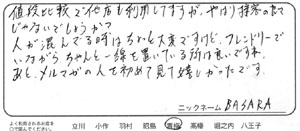 値段比較で他店も利用してますが、やはり接客の差で
じゃないでしょうか?
人が混んでる時はちょっと大変ですけど、フレンドリーで
いながらちゃんと一線を置いている所は良いですね。
あと、メルマガの人を初めて見て嬉しかったです。
ニックネーム BASARA
よく利用されるお店を
○で囲んでください。 立川 小作 羽村 昭島 高幡 堀之内 八王子